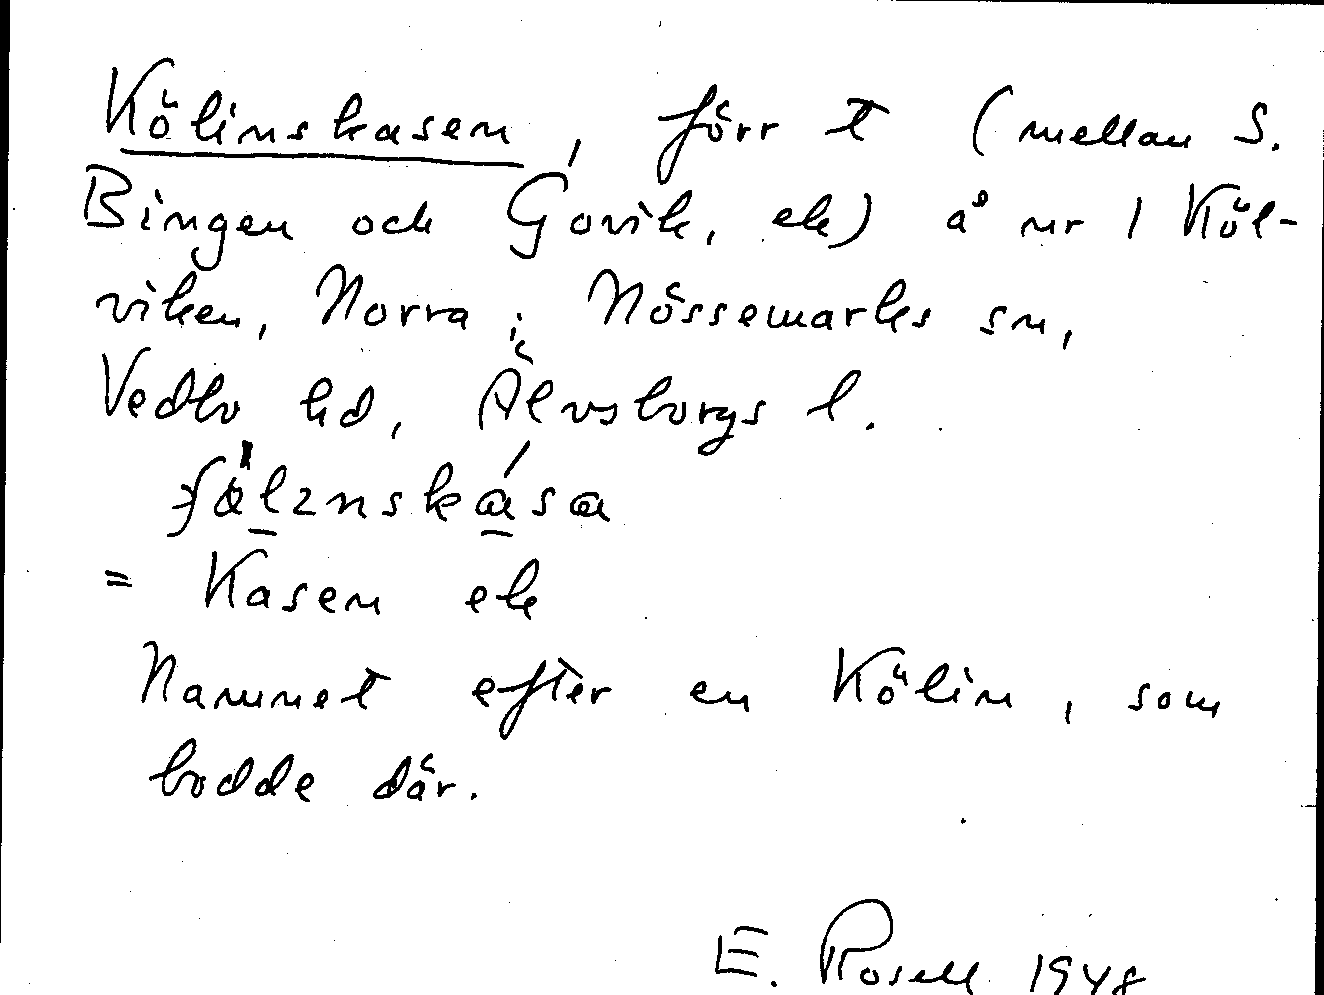 Kölinskasen, förr t (mellan S.
Bingen och Govik, ek) å nr 1 Köl-
viken, Norra i Nössemarks sn,
Vedbo hd, Älvsborgs l.
= Kasen ek
Namnet efter en Kölin, som
bodde där.
E. Rosell 1948